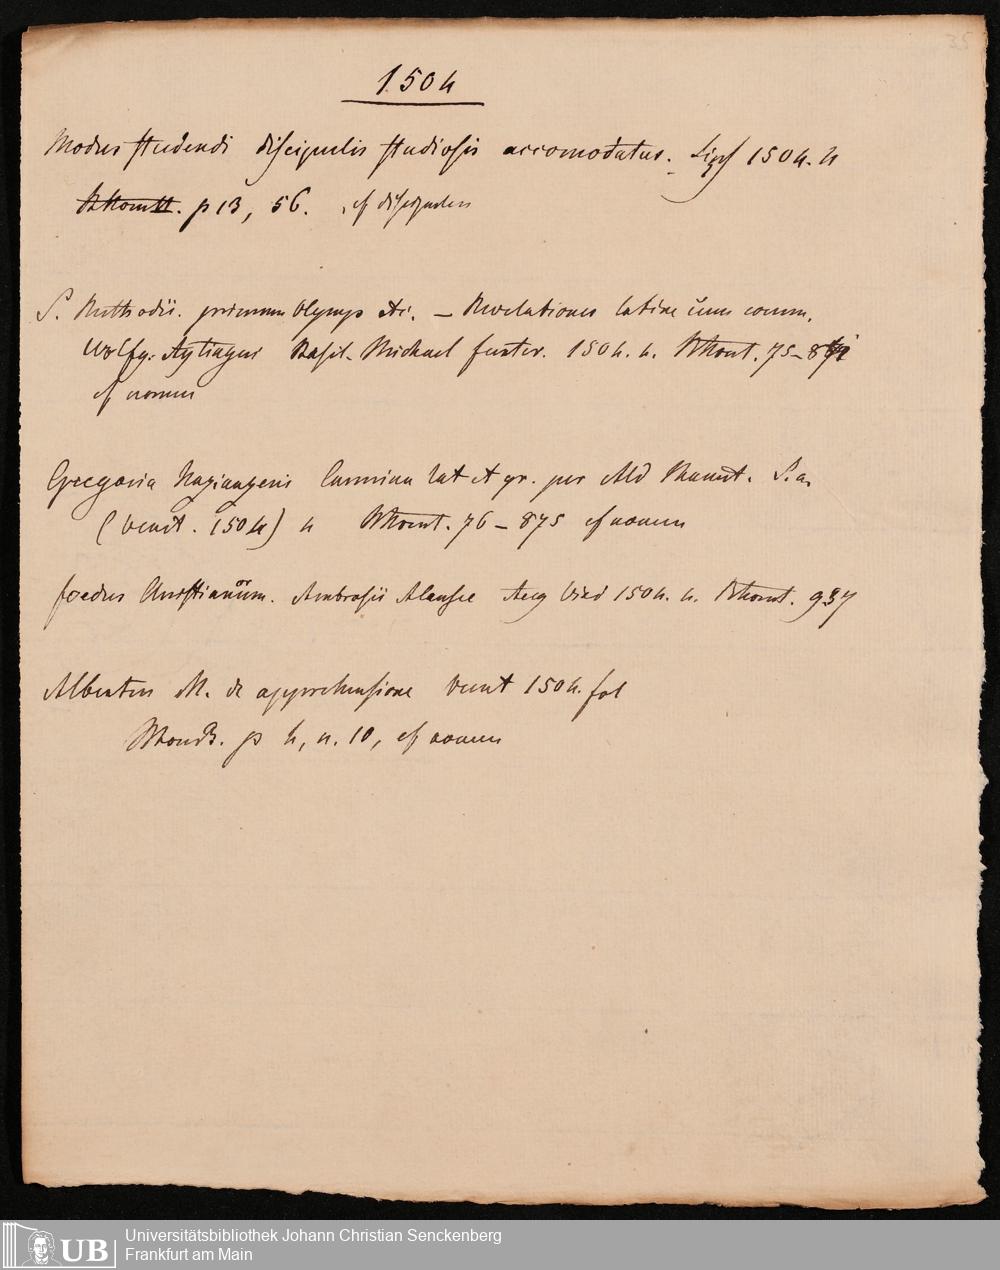 35
1504
Modus studendi discipulis studiosis accomodatus. Lips 1504. 4
p 13, 56. cf discipulus
S. Methodii. primum Olymp etc. – Revelationes latine cum comm.
Wolfg. Aytingeri Basil. Michael furter. 1504. 4. 75–
cf nomen
Gregoria Nazianzeni Carmina lat et gr. per Ald Manut. S. a.
(Venet. 1504) 4 76–875 cf nomen
foedus Christianorum. Ambrosii Alantsee Aug Vind 1504. 4. 937
Albertus M. de apprehensione Venet 1504. fol
p 4, n. 10, cf nomen
UB Universitätsbibliothek Johann Christian Senckenberg
Frankfurt am Main